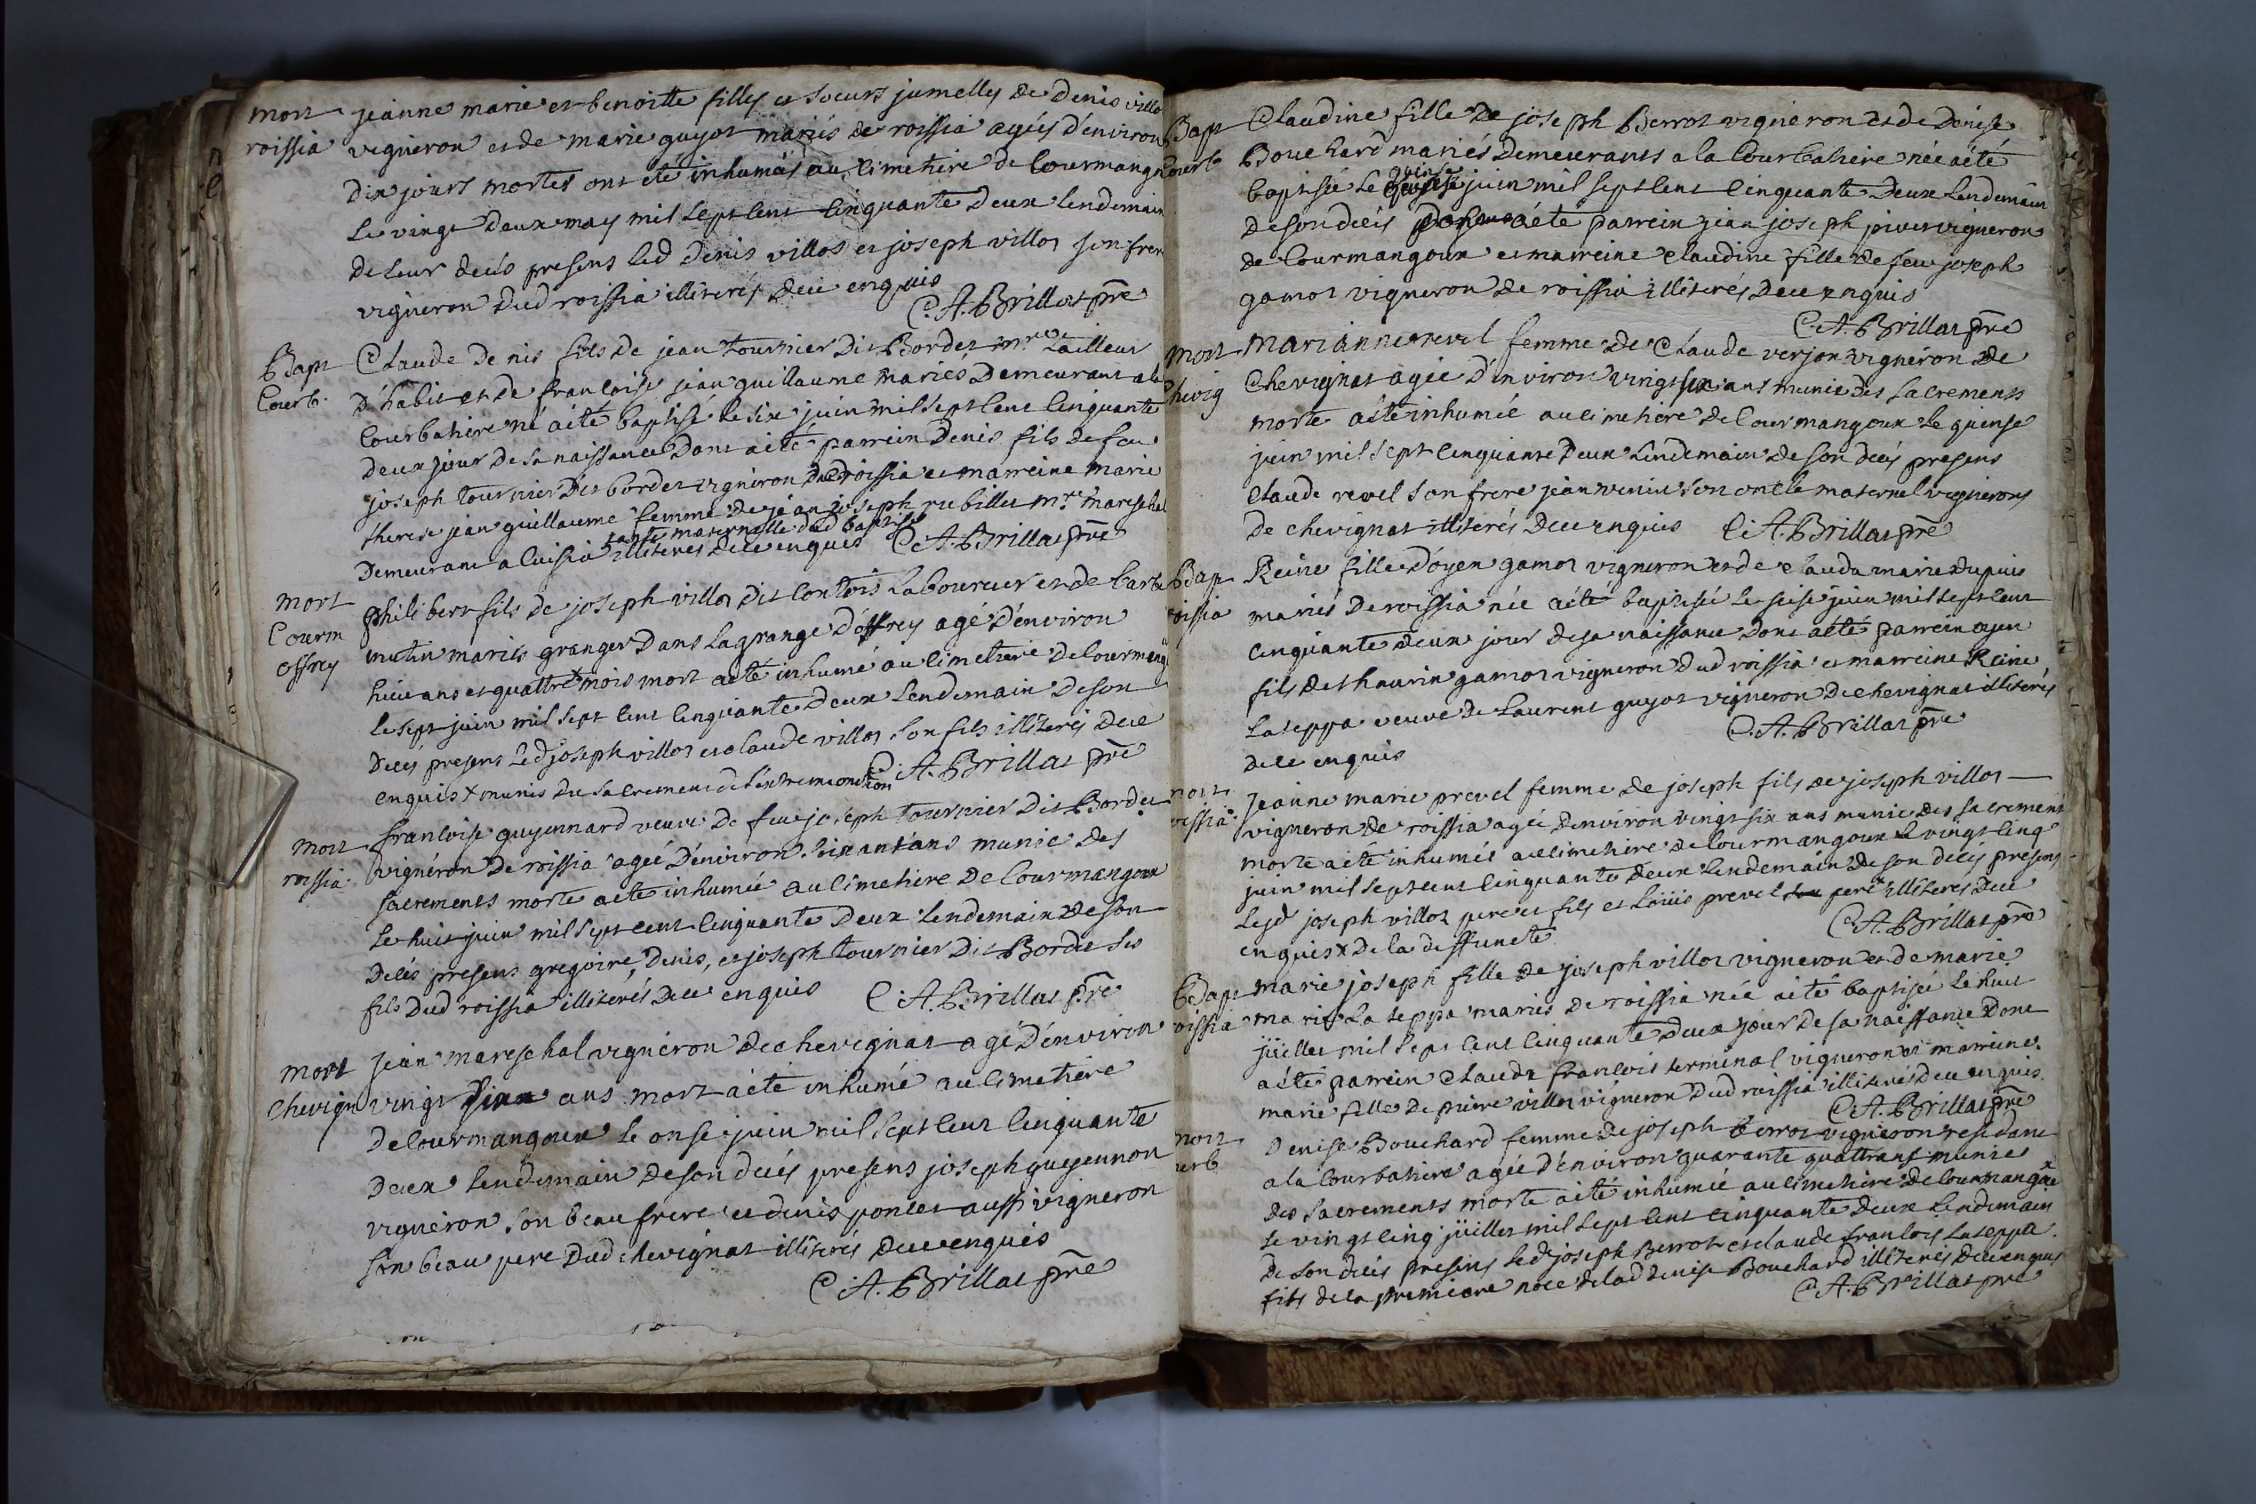 mort
roissia
jeanne marie et benoitte filles et soeurs jumelles de Denis villot
vigneron et de marie guyot mariés de roissia agées d'environ
dix jours mortes ont eté inhumés au cimetiere de Courmangoux
Le vingt deux may mil sept cent cinquante deux lendemain
de leur decés presens led Denis villot et joseph villot son frere
vigneron dud roissia illiterés dece enquis
C. A. Brillat pre
Bapt
Courb.
Claude Denis fils de jean tournier dit Bordet mre tailleur
d'habit et de francoise jean guillaume mariés demeurant a la
Courbatiere né a eté baptisé le six juin mil sept cent cinquante
deux jour de sa naissance dont a eté parrein denis fils de feu
joseph tournier dit bordet vigneron de roissia et marreine marie
therese jean guillaume femme de jean joseph rubillet mre mareschal
tante maternelle dud baptisé
demeurant a Cuisia illiterés dece enquis C. A. Brillat pre
mort
Courm
offrey
philibert fils de joseph villot dit Contois laboureur et de Barbe
mutin mariés granger dans la grange d'offrey agé d'environ
huit ans et quattre mois mort a eté inhumé au cimetiere de Courmangx
le sept juin mil sept cent cinquante deux lendemain de son
decés presens led joseph villot et claude villot son fils illiterés dece
enquis x munis du sacrement de l'extremonction C. A. Brillat pre
mort
roissia
francoise guyennard veuve de feu joseph tournier dit Bordet
vigneron de roissia agée d'environ soixant ans munie des
sacrements morte a eté inhumée au cimetiere de Courmangoux
le huit juin mil sept cent cinquante deux lendemain de son
decés presens gregoire, Denis, et joseph tournier dit Bordet ses
fils dud roissia illiterés dece enquis C. A. Brillat pre
mort
chevign
jean mareschal vigneron de chevignat agé d'environ
vingt ans mort a eté inhumé au cimetiere
de Courmangoux le onse juin mil sept cent cinquante
deux lendemain de son decés presens joseph guyennon
vigneron son beau frere et denis poncet aussi vigneron
son beau pere dud chevignat illiterés dece enquis
C. A. Brillat pre
Bapt
Courb
Claudine fille de joseph Berrot vigneron et de Denise
Bouchard mariés demeurants a la Courbatiere née a eté
quinse
baptisée le juin mil sept cent cinquante deux lendemain
de son decés a eté parrein jean joseph pivet vigneron
de Courmangoux et marreine claudine fille de feu joseph
gamot vigneron de roissia illiterés dece enquis
C. A. Brillat pre
mort
chevig
marianne revel femme de Claude verjon vigneron de
Chevignat agée d'environ vingt six ans munie des sacrements
morte a eté inhumée au cimetiere de Courmangoux le quinse
juin mil sept cinquante deux lendemain de son decés presens
Claude revel son frere jean venin son oncle maternel vignerons
de chevignat illiterés dece enquis C. A. Brillat pre
Bap
roissia
Reine fille d'oyen gamot vigneron et de clauda marie dupuis
mariés de roissia née a eté baptisée le seise juin mil sept cent
cinquante deux jour de sa naissance dont a eté parrein oyen
fils de thaurin gamot vigneron dud roissia et marreine Reine
lateppa veuve de Laurent guyot vigneron de chevignat illiterés
dece enquis
C. A. Brillat pre
mort
roissia
Jeanne marie prevel femme de joseph fils de joseph villot
vigneron de roissia agée d'environ vingt six ans munie des sacrements
morte a eté inhumée au cimetiere de Courmangoux le vingt cinq
juin mil sept cent cinquante deux lendemain de son decés presens
lesd joseph villot pere et fils et Louis prevel pere x illiterés dece
enquis x de la deffuncte
C. A. Brillat pre
Bapt
roissia
marie joseph fille de joseph villot vigneron et de marie
marie la teppa mariés de roissia née a eté baptisée le huit
jüillet mil sept cent cinquante deux jour de sa naissance dont
a eté parrein Claude francois terminal vigneron et marreine
marie fille de pierre villot vigneron dud roissia illiterés dece enquis
C. A. Brillat pre
mort
Courb
Denise Bouchard femme de joseph Berrot vigneron residant
a la Courbatiere agée d'environ quarante quattr ans munie
des sacrements morte a eté inhumée au cimetiere de Courmangx
le vingt cinq jüillet mil sept cent cinquante deux lendemain
de son decés presens led joseph Berrot et claude francois lateppa
fils de la premiere noce de lad denise Bouchard illiterés dece enquis
C. A. Brillat pre